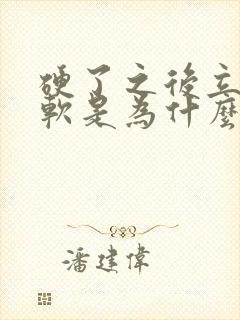 硬了之後立
軟是為什麼
潘建偉